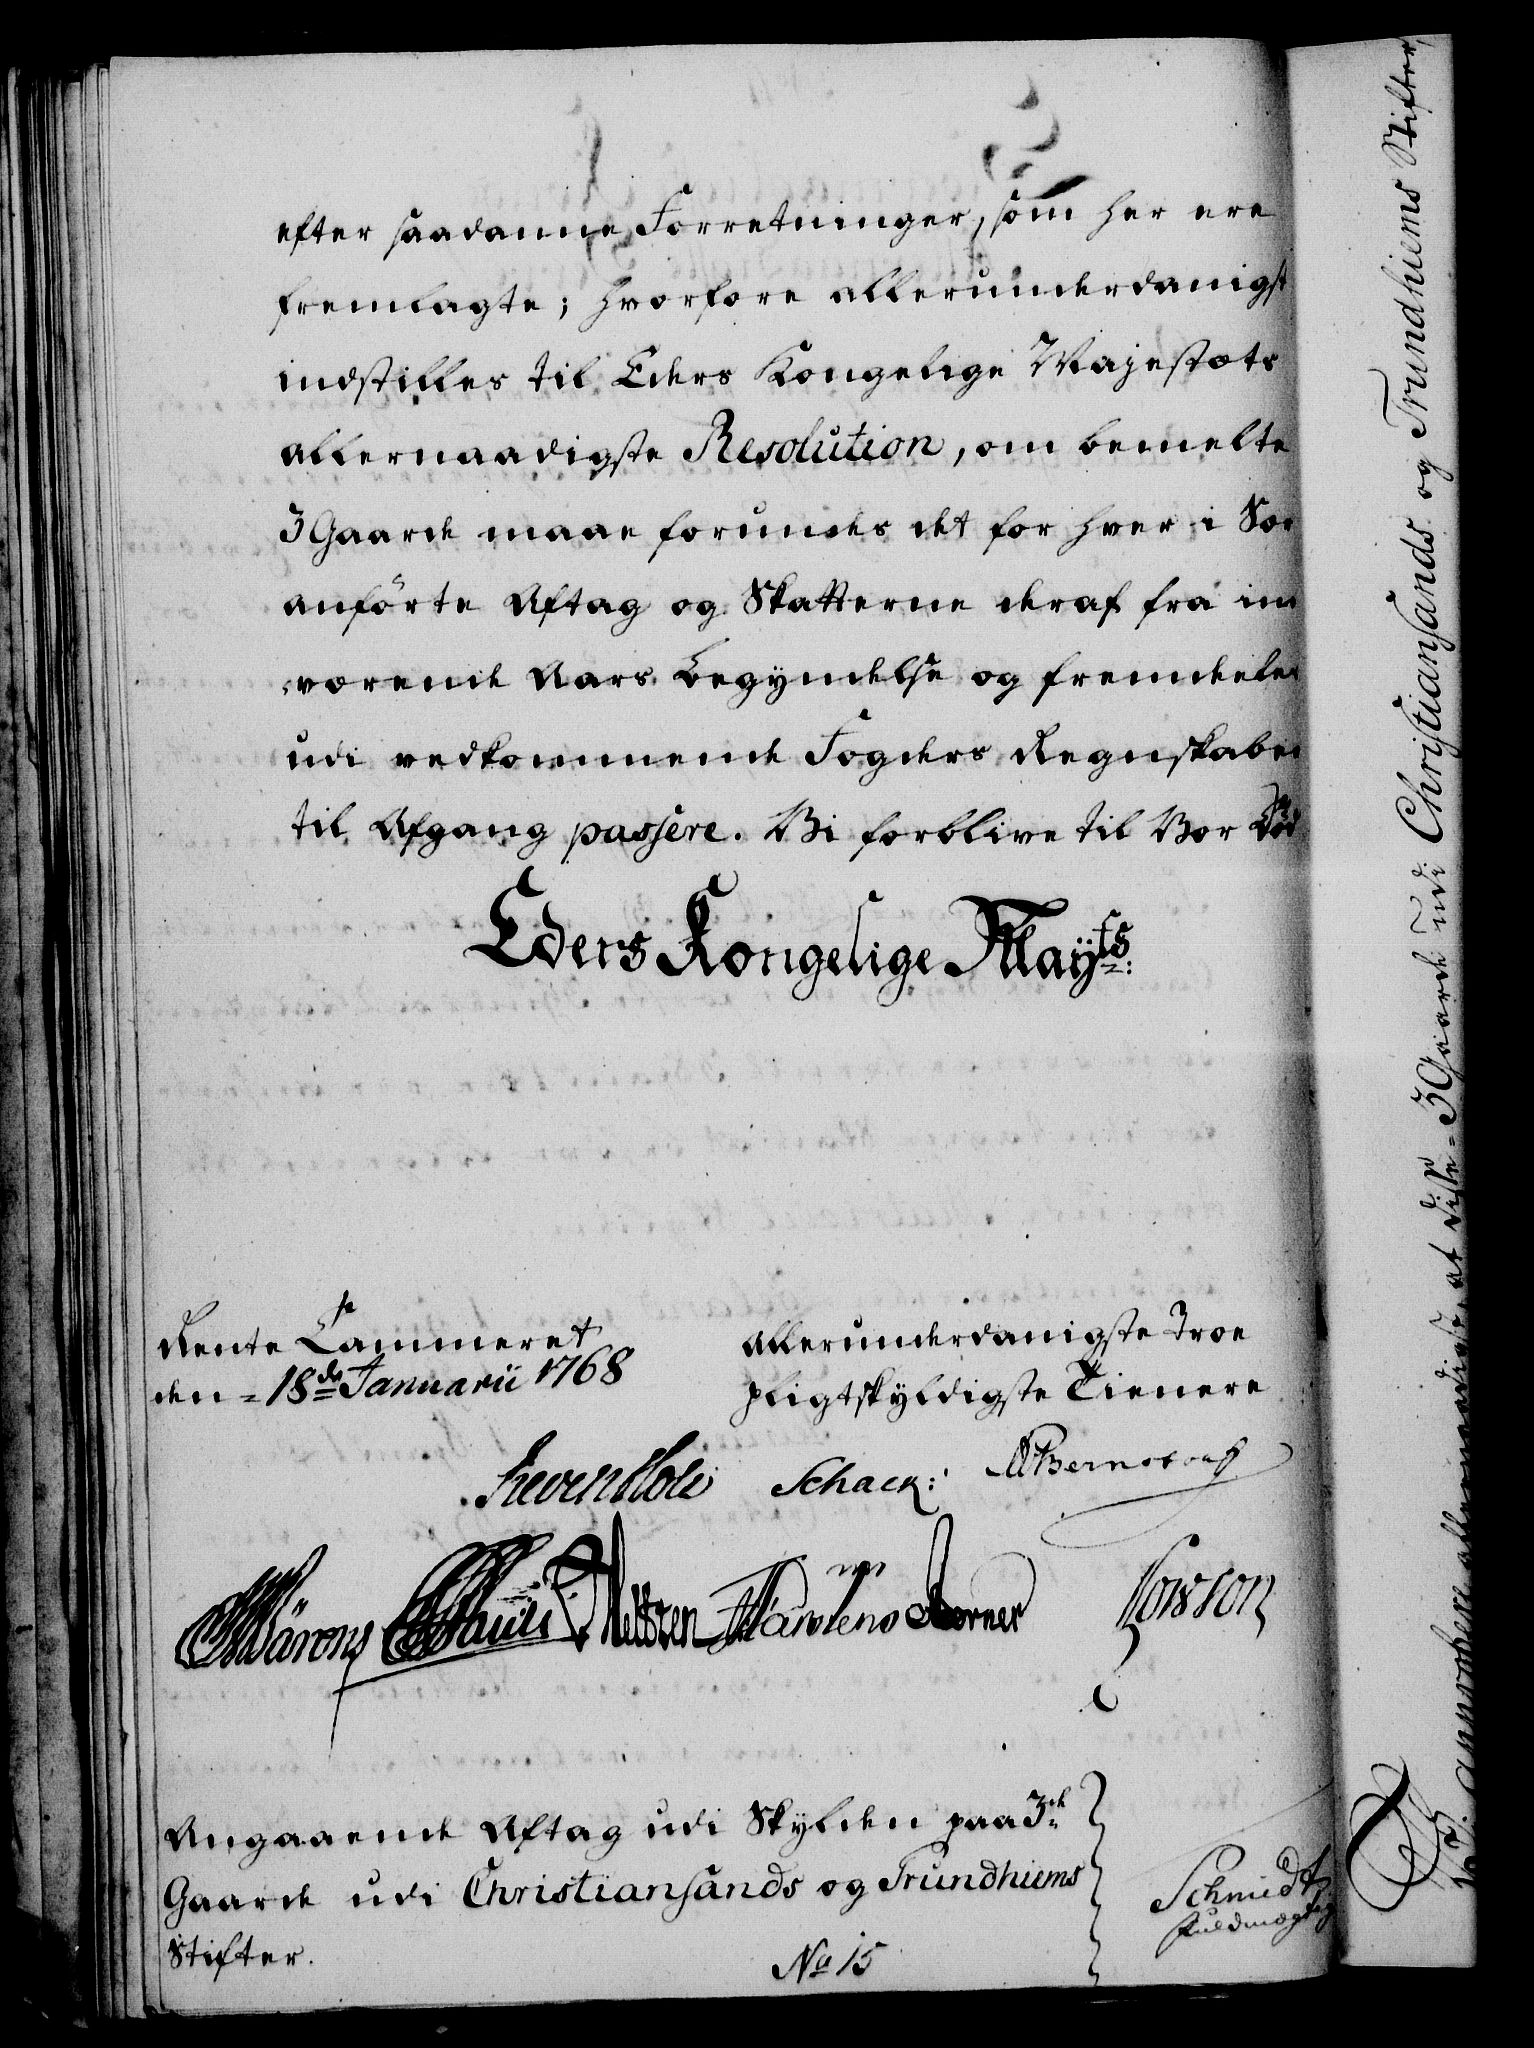 efter saadanne Forretninger, som her ere
fremlagte; hvorfore allerunderdanigst
indstilles til Eders Kongelige Majestæts
allernaadigste Resolution, om bemelte
3 Gaarde maae forundes det for hver i Sær
anförte Aftag og Skatterne deraf fra in
værende Aars Begyndelse og fremdeles
udi vedkommende Fogders Regnskaber
til Afgang passere. Vi forblive til Vor Död
Eders Kongelige Mayts:
Rente Cammeret
den 18de Januarii 1768
allerunderdanigste Troe
pligtskyldigste Tienere
Schack: Bernstorff
Meltzen Martens Körner
Angaaende Aftag udi Skylden paa 3de
Gaarde udi Christiansands og Trundhiems
Stifter.
No 15
Schmidt
fuldmægtig
approbere allernaadigst, at disse 3 Gaarde udi Christiansands og Trundhiems Stifter,